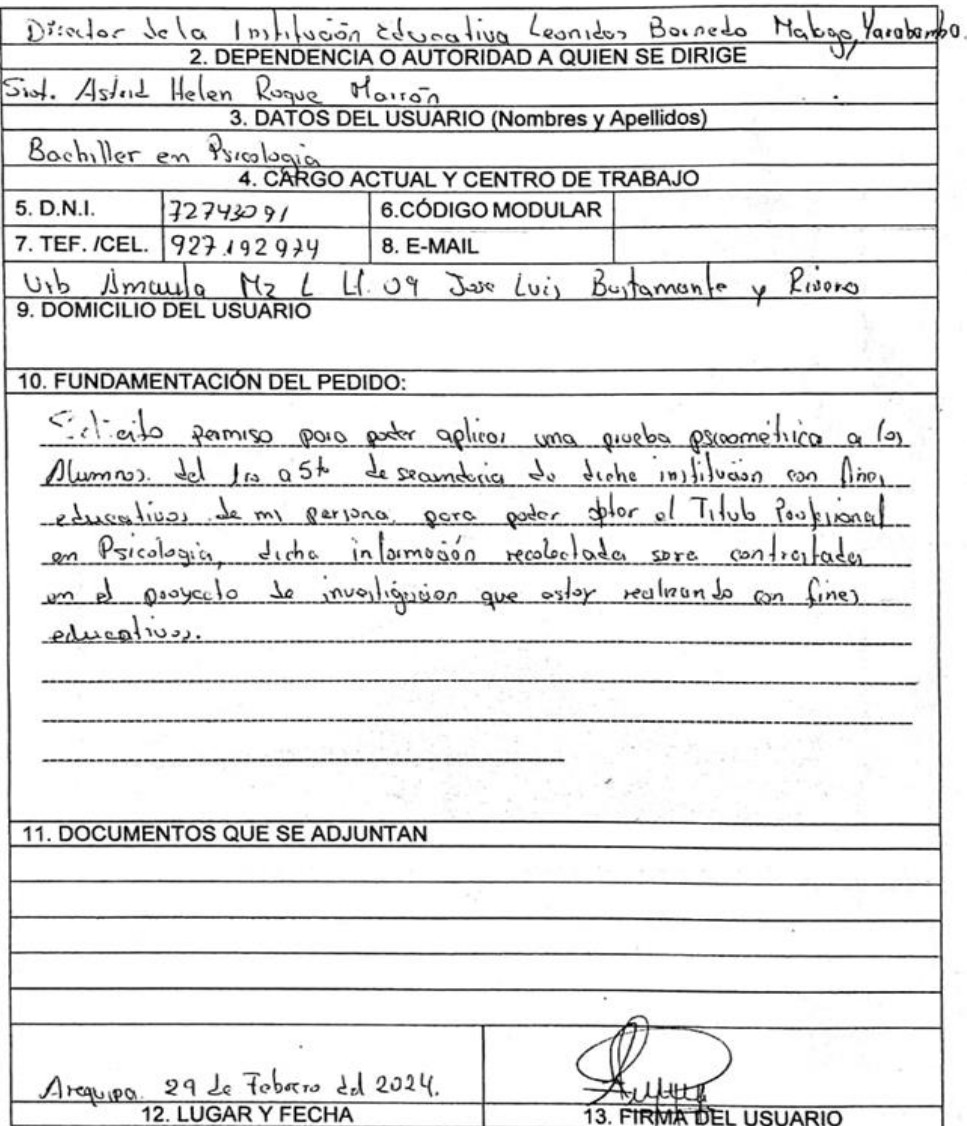 Director de la Institución Educativa Leonidas Bernedo Malaga, Yarabamba.
2. DEPENDENCIA O AUTORIDAD A QUIEN SE DIRIGE
Srat. Astrid Helen Roque Marrón
3. DATOS DEL USUARIO (Nombres y Apellidos)
Bachiller en Psicologia
4. CARGO ACTUAL Y CENTRO DE TRABAJO
5. D.N.I. 72743091 6.CÓDIGO MODULAR
7. TEF. /CEL. 927192974 8. E-MAIL
Urb Amauta Mz L Lt. 09 Jose Luis Bustamante y Rivero
9. DOMICILIO DEL USUARIO
10. FUNDAMENTACIÓN DEL PEDIDO:
Solicito permiso para poder aplicar una prueba psicométrica a los
Alumnos del 1ro a 5to de secundaria de dicha institución con fines
educativos de mi persona para poder optar el Titulo Profesional
en Psicologia, dicha información recolectada sera contrastada
en el proyecto de investigacion que estoy realizando con fines
educativos.
11. DOCUMENTOS QUE SE ADJUNTAN
Arequipa. 29 de Febrero del 2024.
12. LUGAR Y FECHA
13. FIRMA DEL USUARIO